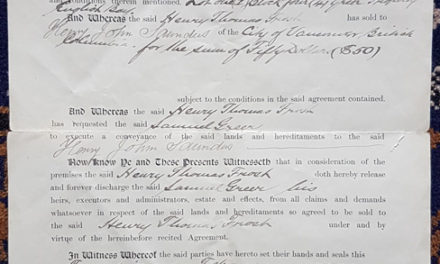 and conditions therein mentioned. Lot One 1 Block four (4) Greer Property
English Bay.
And Whereas the said Henry Thomas Frost has sold to
Henry John Saunders of the City of Vancouver British
Columbia for the sum of Fifty Dollars ($50)
subject to the conditions in the said agreement contained.
And Whereas the said Henry Thomas Frost
has requested the said Samuel Greer
to execute a conveyance of the said lands and hereditaments to the said
Henry John Saunders
Now Know Ye and These Presents Witnesseth that in consideration of the
premises the said Henry Thomas Frost doth hereby release
and forever discharge the said Samuel Greer his
heirs, executors and administrators, estate and effects, from all claims and demands
whatsoever in respect of the said lands and hereditaments so agreed to be sold to
the said Henry Thomas Frost under and by
virtue of the hereinbefore recited Agreement.
In Witness Whereof the said parties have set their hands and seals this